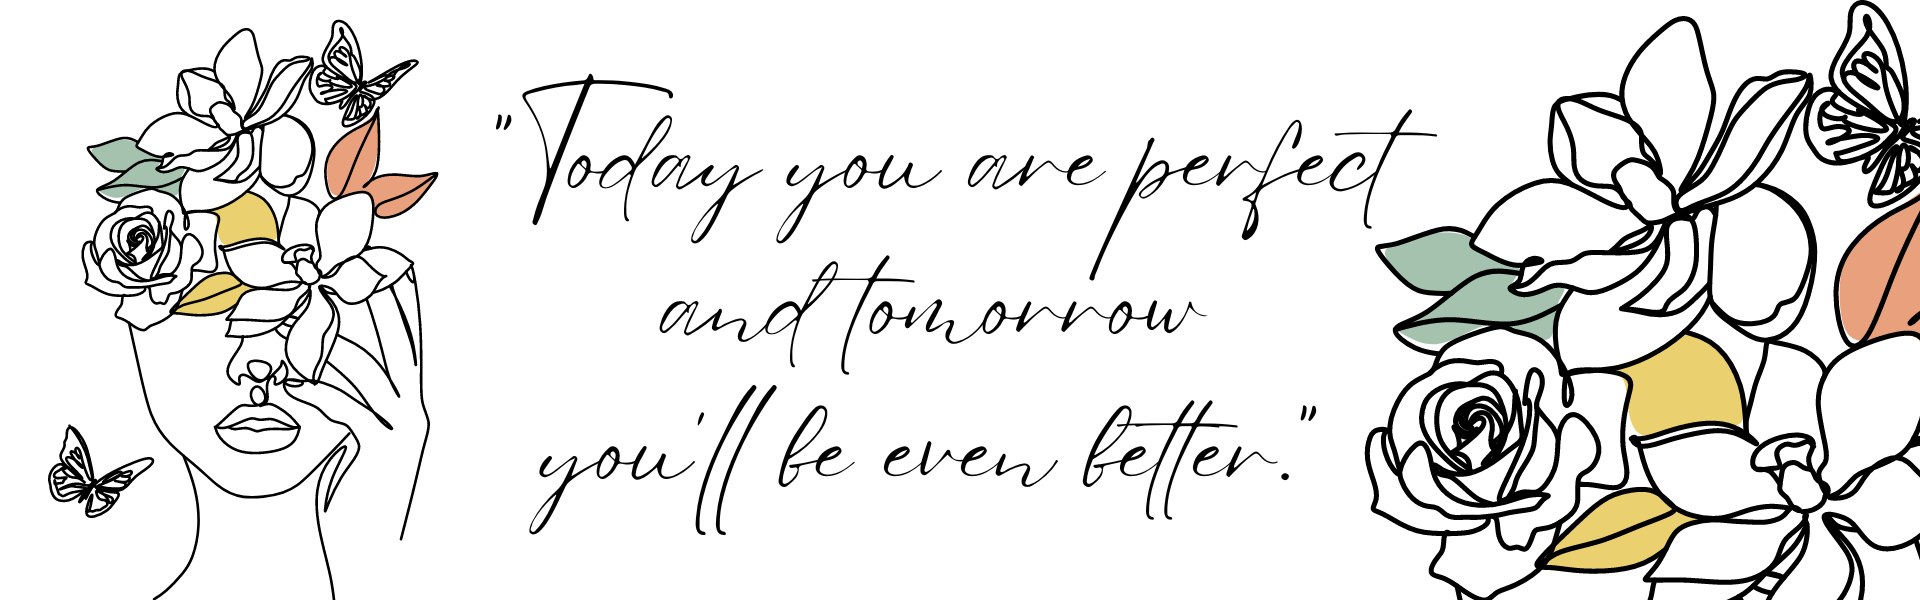 "Today you are perfect
and tomorrow
you'll be even better."